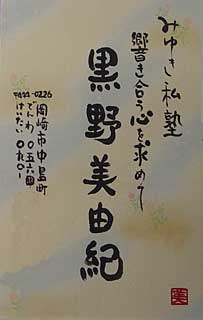 みゆき私塾
響き合う心を求めて
黒野美由紀
〒444-0226
岡崎市中島町
でんわ 〇五六四
けいたい 〇九〇-
美